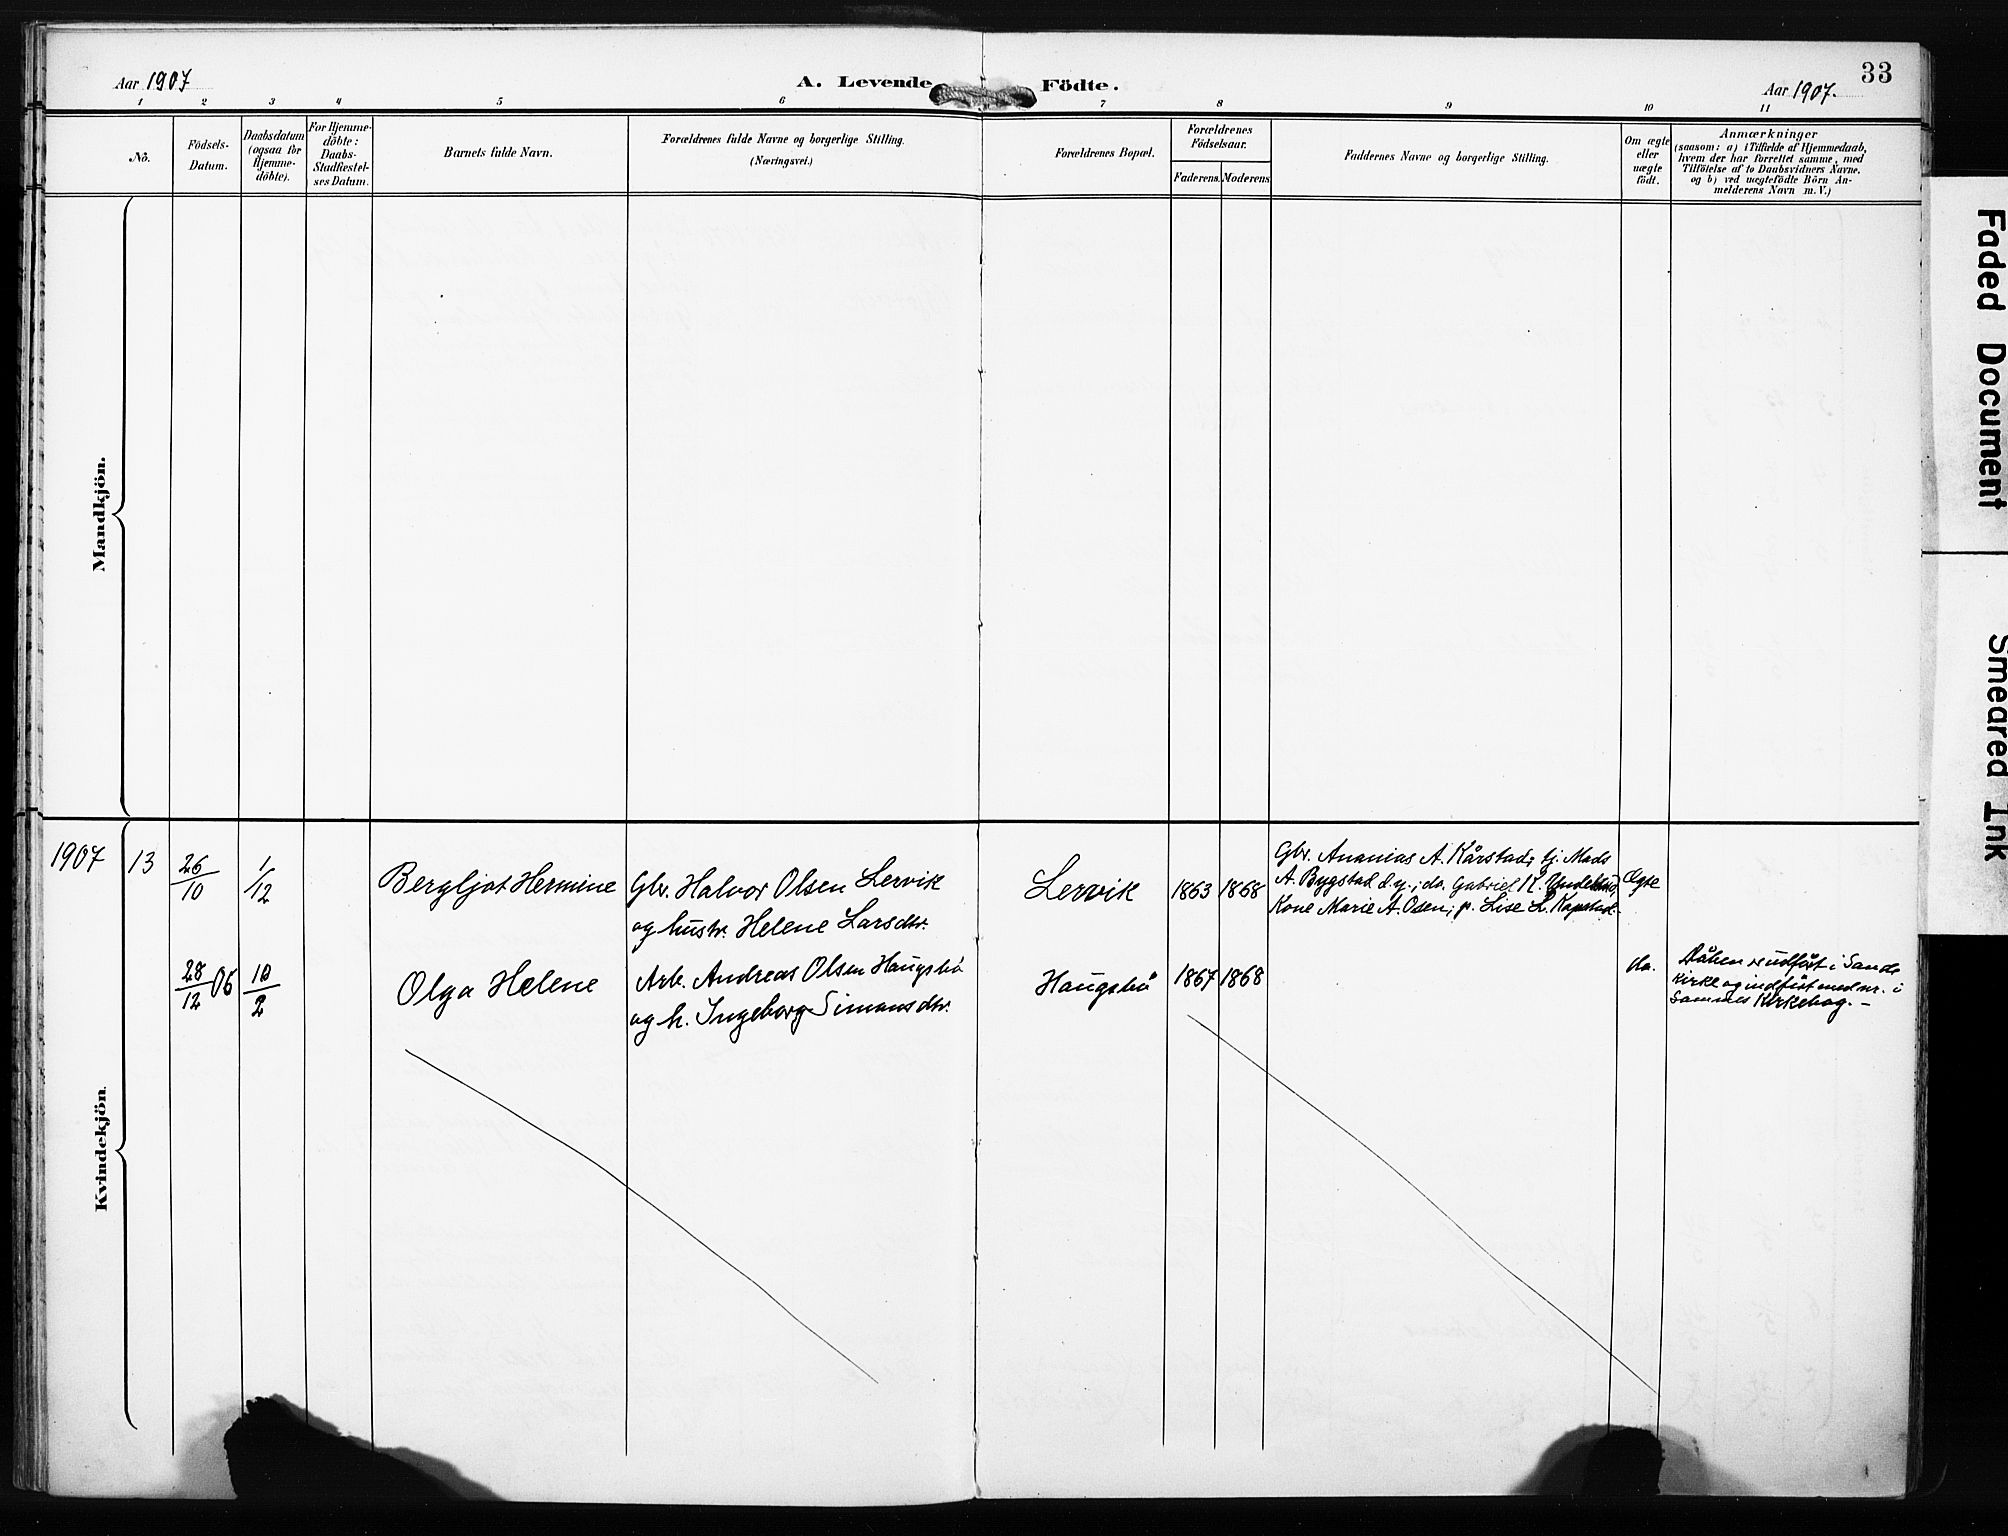 33
Aar 1907
A. Levende Födte.
Aar 1907.
1 2 3 4 5 6 7 8 9 10 11
No.
Födsels-
Datum.
Daabsdatum
(ogsaa for
Hjemme-
döbte).
For Hjemme-
döbte:
Daabs-
Stadfæstel-
ses Datum.
Barnets fulde Navn.
Forældrenes fulde Navne og borgerlige Stilling.
(Næringsvei.)
Forældrenes Bopæl.
Forældrenes
Födselsaar.
Faderens. Moderens
Faddernes Navne og borgerlige Stilling.
Om ægte
eller
uægte
födt.
Anmærkninger
(saasom: a) i Tilfælde af Hjemmedaab,
hvem der har forrettet samme, med
Tilföielse af to Daabsvidners Navne,
og b) ved uægtefödte Börn An-
melderens Navn m. V.)
Mandkjön.
Kvindekjön.
1907 13 26/10 1/12
Bergljot Hermine
Gbr. Halvor Olsen Lervik
og hustr. Helene Larsdtr.
Lervik
1863 1868
Gbr. Ananias A. Kårstad; tj. Mads
A. Bygstad d.y.; do. Gabriel K.
Kone Marie A. Osen; p. Lise L. Kapstad.
Ægte
28/12 06 10/2
Olga Helene
Arb. Andreas Olsen Haugsbö
og h. Ingeborg Simonsdtr.
Haugsbö
1867 1868
do.
Dåben er udfört i Sande
Kirke og indfört med nr. i
Sammes Kirkebog. –
Faded Document
Smeared Ink